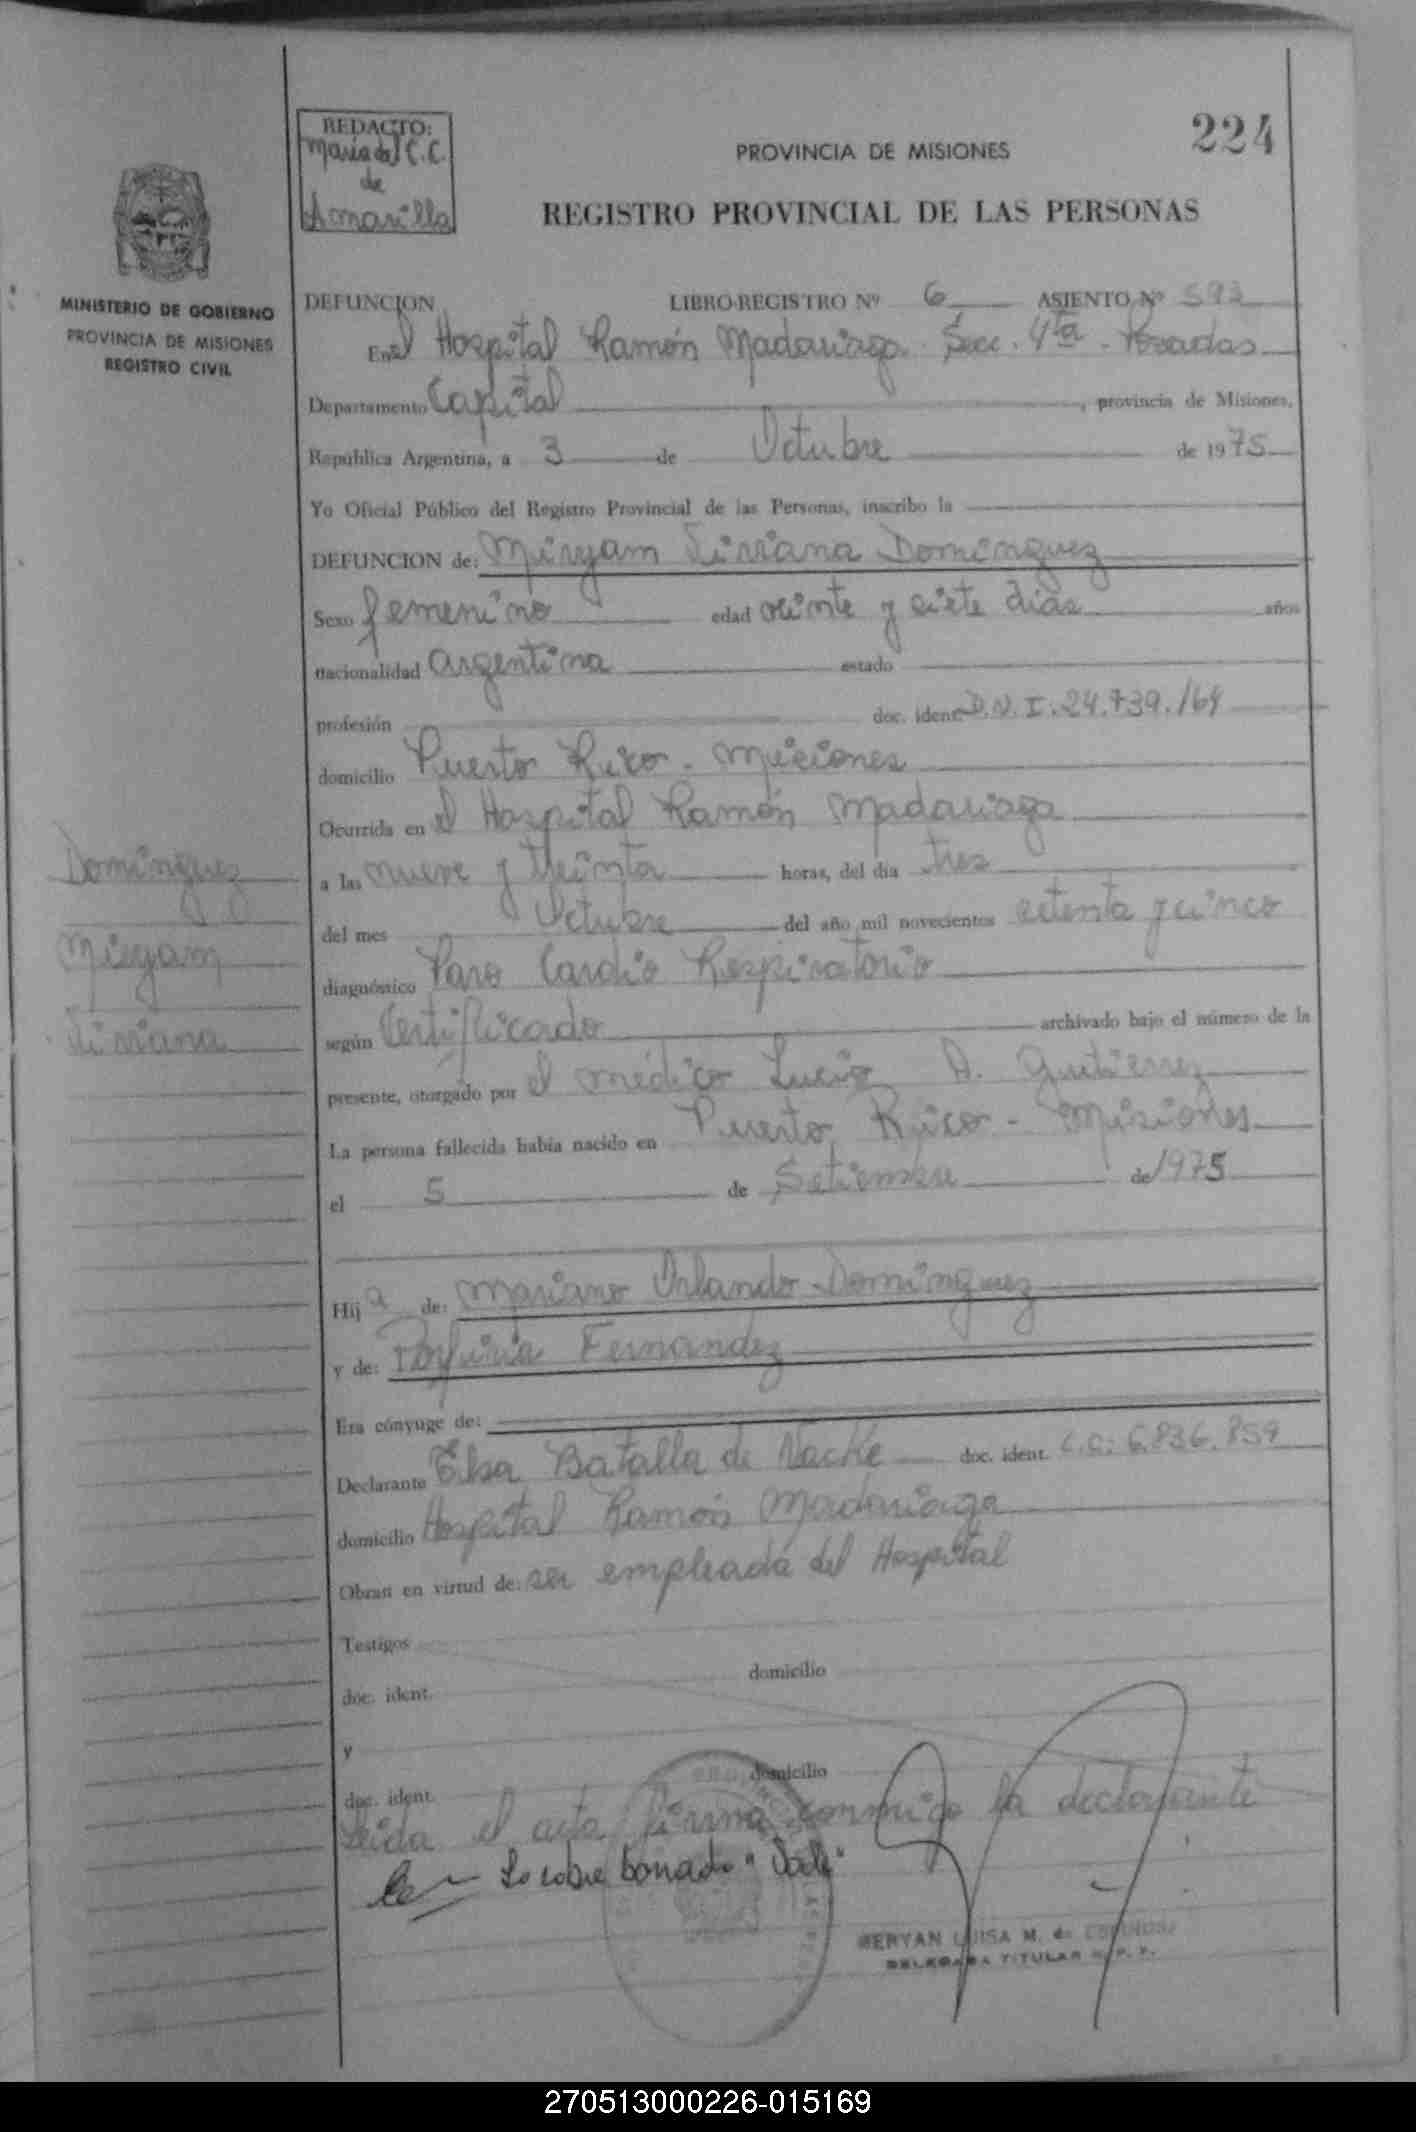 224
REDACTO:
Maria del C.C.
de
Amarilla
PROVINCIA DE MISIONES
REGISTRO PROVINCIAL DE LAS PERSONAS
MINISTERIO DE GOBIERNO
PROVINCIA DE MISIONES
REGISTRO CIVIL
DEFUNCION LIBRO-REGISTRO Nº 6 ASIENTO Nº 593
En el Hospital Ramón Madariaga. Secc. 4ta - Posadas
Departamento Capital, provincia de Misiones,
República Argentina, a 3 de Octubre de 1975
Yo Oficial Público del Registro Provincial de las Personas, inscribo la
DEFUNCION de: Miryam Viviana Domínguez
Sexo femenino edad veinte y siete días años
nacionalidad argentina estado
profesión doc. ident. D.N.I. 24.739.164
domicilio Puerto Rico - Misiones
Ocurrida en el Hospital Ramón Madariaga
a las nueve y treinta horas, del día tres
del mes Octubre del año mil novecientos setenta y cinco
diagnóstico Paro Cardio Respiratorio
según Certificado archivado bajo el número de la
presente, otorgado por el médico Lucio A. Gutierrez
La persona fallecida había nacido en Puerto Rico - Misiones
el 5 de Setiembre de 1975
Hij a de: Mariano Orlando Domínguez
y de: Porfiria Fernandez
Era cónyuge de:
Declarante Elsa Batalla de Nacke doc. ident. L.C: 6.836.859
domicilio Hospital Ramón Madariaga
Obran en virtud de: ser empleada del Hospital
Testigos
domicilio
doc. ident.
y
domicilio
doc. ident.
Leida el acta firma conmigo la declarante
Lo sobre borrado "Vale"
MERYAN LUISA M. de ESPINOSA
DELEGADA TITULAR R. P. P.
Domínguez
Miryam
Viviana
270513000226-015169